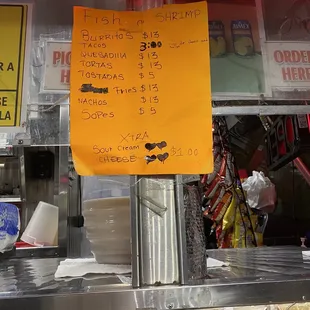 Fish & SHRIMP
BURRITOS $13
TACOS 3:00
QUESADILLA $13
TORTAS $13
TOSTADAS $5
Fries $13
NACHOS $13
Sopes $5
XTRA
Sour Cream
CHEESE $1.00
PIC
HERE
ORDE
HERE